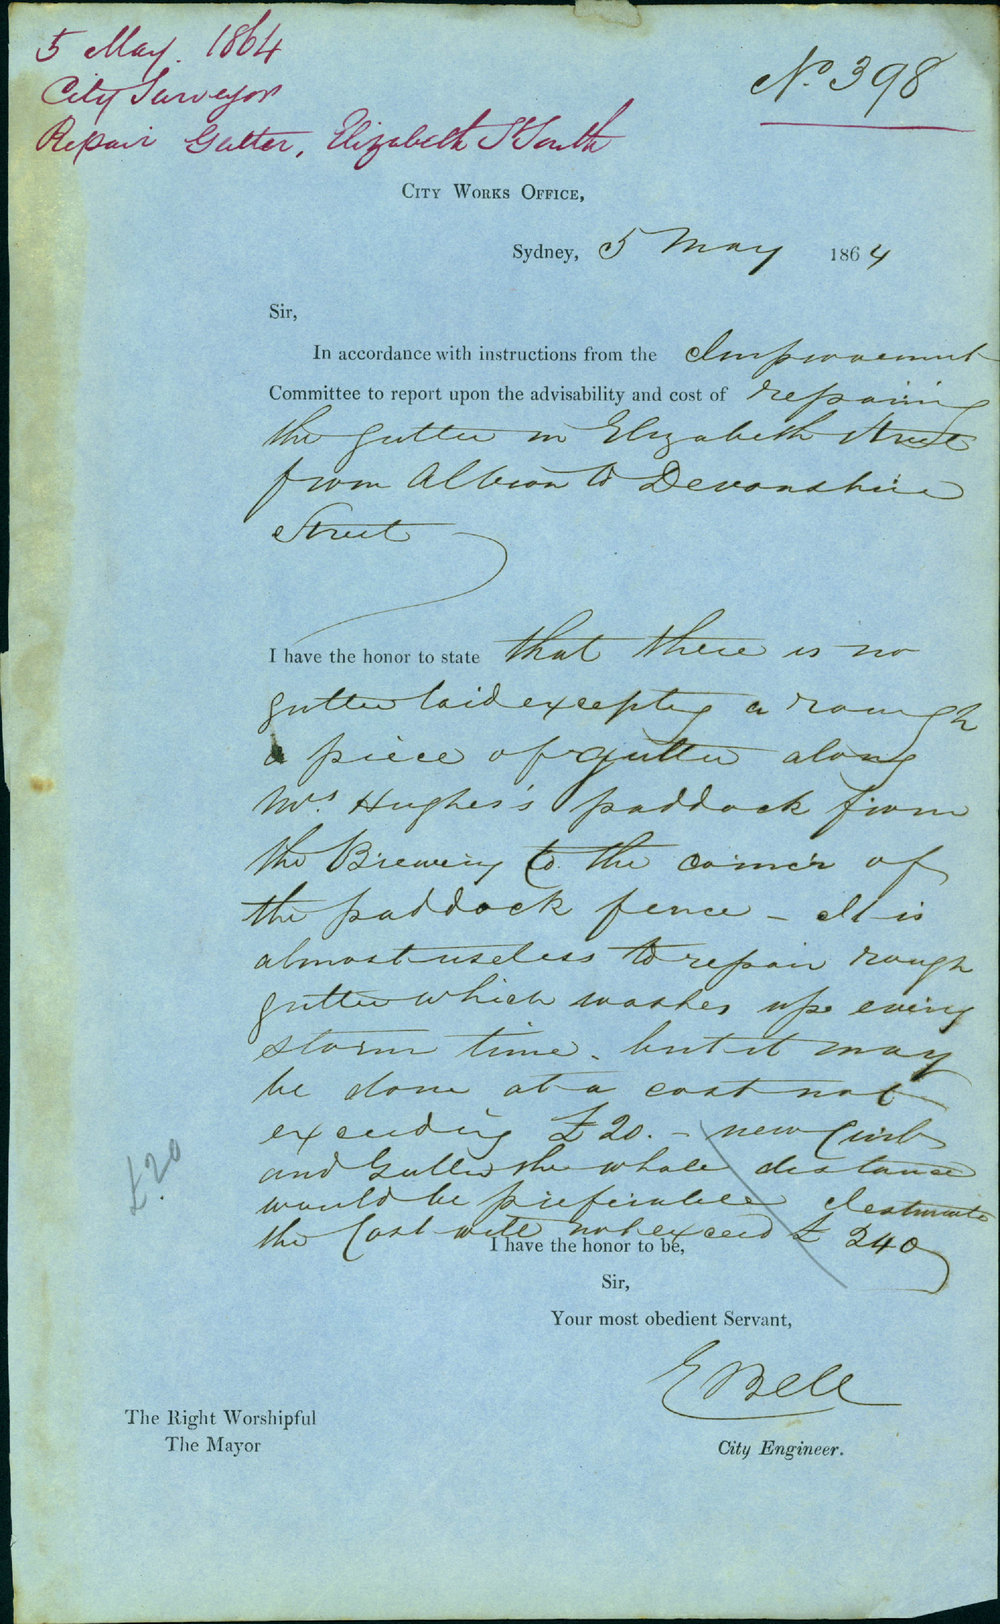 5 May. 1864
City Surveyor
Repair Gutter, Elizabeth St South
No. 398
City Works Office,
Sydney, 5 May 1864
Sir,
In accordance with instructions from the Improvement
Committee to report upon the advisability and cost of repairing
the gutter in Elizabeth Street
from Albion to Devonshire
Street
I have the honor to state that there is no
gutter laid excepting a rough
piece of gutter along
Mrs. Hughes's paddock from
the Brewery to the corner of
the paddock fence - It is
almost useless to repair rough
gutter which washes up every
storm time. but it may
be done at a cost not
exceeding £20. - new Curb
and Gutter the whole distance
would be preferable I estimate
the Cost will not exceed £240
£20
I have the honor to be,
Sir,
Your most obedient Servant,
E Bell
City Engineer.
The Right Worshipful
The Mayor